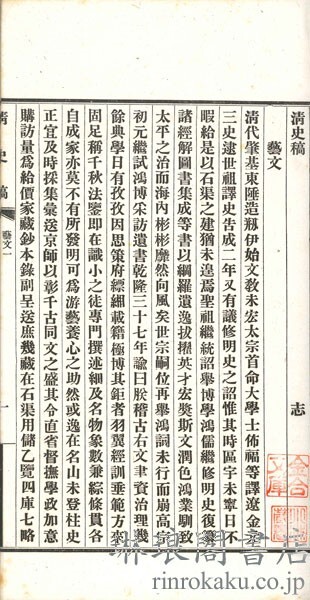 清史稿
志
藝文
清代肇基東陲造邦伊始文教未宏太宗首命大學士希福等譯遼金元
三史逮世祖譯史告成二年又有議修明史之詔惟其時區宇未寧日不
暇給是以石渠之建猶未遑焉聖祖繼統詔舉博學鴻儒繼修明史復纂
諸經解圖書集成等書以網羅遺逸拔擢英才宏獎斯文潤色鴻業馴致
太平之治而海內彬彬靡然向風矣世宗嗣位再舉鴻詞未行而崩高宗
初元繼試鴻博采訪遺書乾隆三十七年諭曰朕稽古右文聿資治理幾
餘典學日有孜孜因思策府縹緗載籍極博其鉅者羽翼經訓垂範方來
固足稱千秋法鑒即在識小之徒專門撰述細及名物象數兼綜條貫各
自成家亦莫不有所發明可為游藝養心之助然或逸在名山未登柱史
正宜及時採集彙送京師以彰千古同文之盛其令直省督撫學政加意
購訪量為給價家藏鈔本錄副呈送庶幾藏在石渠用儲乙覽四庫七略
清史稿
藝文一
一
琳琅閣書店
rinrokaku.co.jp